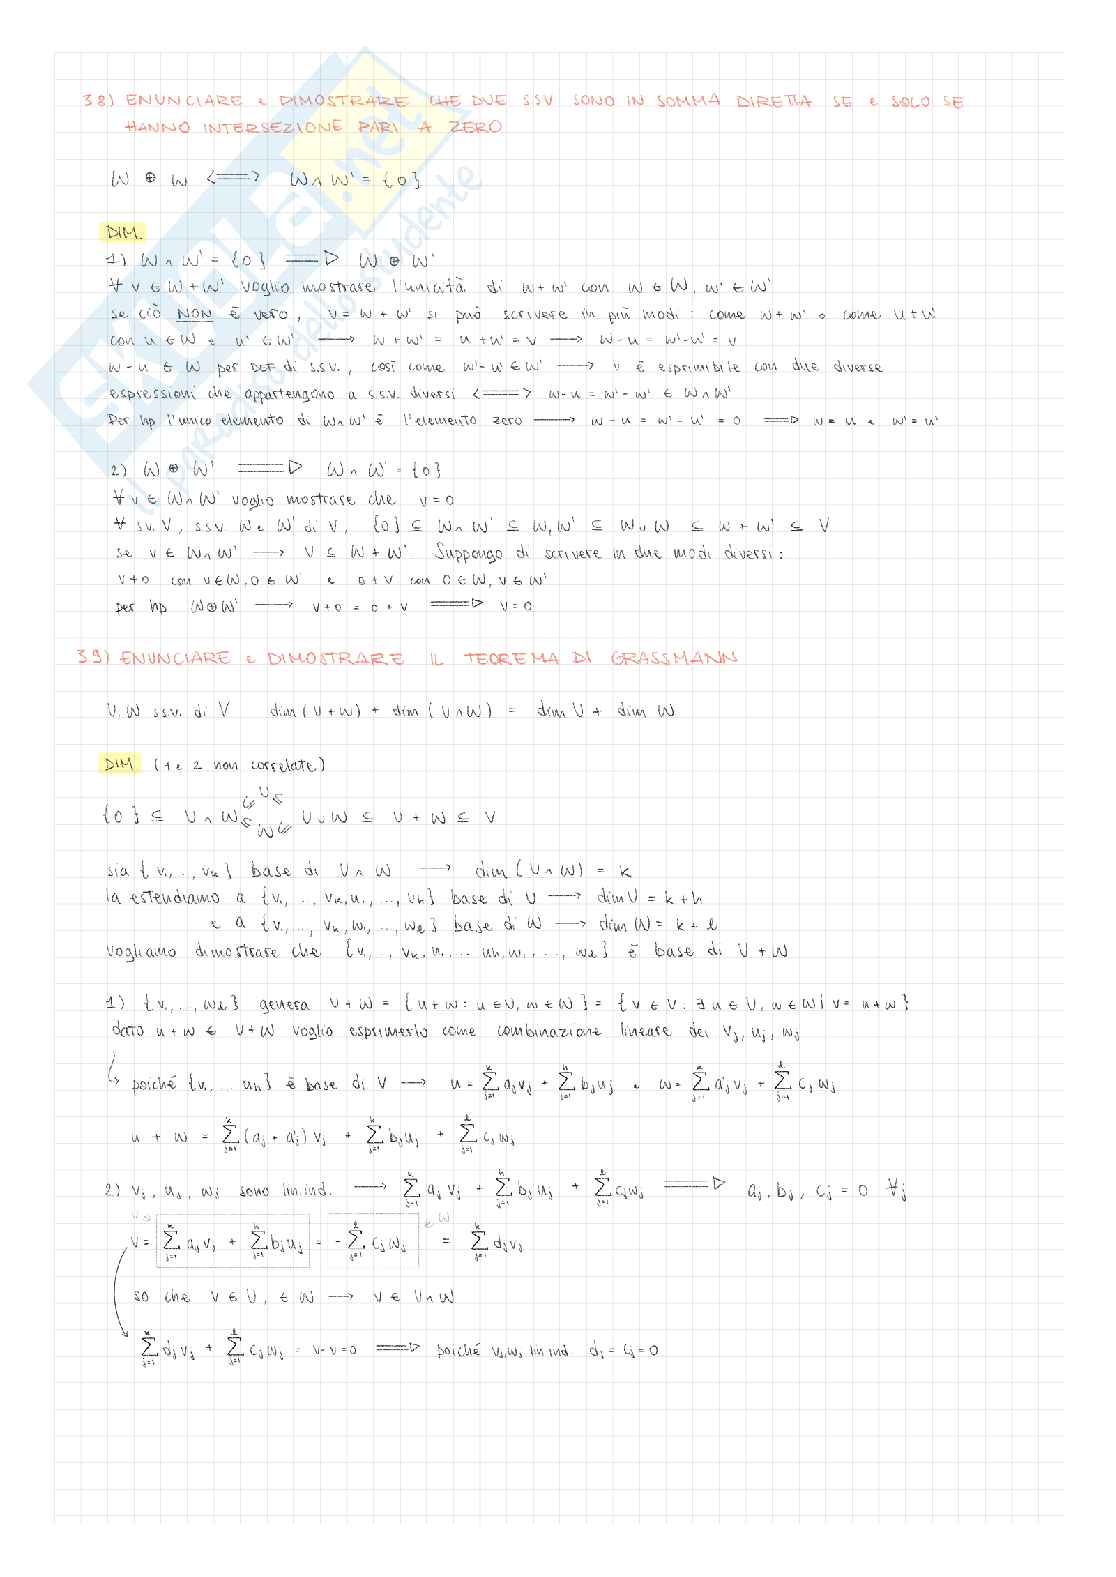 38) ENUNCIARE e DIMOSTRARE CHE DUE SSV SONO IN SOMMA DIRETTA SE e SOLO SE
HANNO INTERSEZIONE PARI A ZERO
W ⊕ W <=> W ∩ W' = {0}
DIM.
1) W ∩ W' = {0} ⟹ W ⊕ W'
∀ v ∈ W + W' voglio mostrare l'unicità di w + w' con w ∈ W, w' ∈ W'
se ciò NON è vero, v = w + w' si può scrivere in più modi: come w + w' o come u + u'
con u ∈ W e u' ∈ W' → w + w' = u + u' = v → w - u = u' - w' = v
w - u ∈ W per DEF di s.s.v., così come w' - u' ∈ W' → v è esprimibile con due diverse
espressioni che appartengono a s.s.v. diversi <=> w - u = w' - u' ∈ W ∩ W'
Per hp l'unico elemento di W ∩ W' è l'elemento zero → w - u = w' - u' = 0 ⟹ w = u e w' = u'
2) W ⊕ W' ⟹ W ∩ W' = {0}
∀ v ∈ W ∩ W' voglio mostrare che v = 0
∀ s.v. V, s.s.v. W e W' di V, {0} ⊆ W ∩ W' ⊆ W, W' ⊆ W ∪ W ⊆ W + W' ⊆ V
se v ∈ W ∩ W' → V ⊆ W + W' Suppongo di scrivere in due modi diversi:
v + 0 con v ∈ W, 0 ∈ W' e 0 + v con 0 ∈ W, v ∈ W'
per hp W ⊕ W' → v + 0 = 0 + v ⟹ v = 0
39) ENUNCIARE e DIMOSTRARE IL TEOREMA DI GRASSMANN
U, W s.s.v. di V dim (U + W) + dim (U ∩ W) = dim U + dim W
DIM (1 e 2 non correlate)
{0} ⊆ U ∩ W ⊆ U ⊆ ⊆ W ⊆ U ∪ W ⊆ U + W ⊆ V
sia {v₁, .., vₖ} base di U ∩ W → dim (U ∩ W) = k
la estendiamo a {v₁, .., vₖ, u₁, .., uₕ} base di U → dim U = k + h
e a {v₁, .., vₖ, w₁, .., wₗ} base di W → dim W = k + l
vogliamo dimostrare che {v₁, .., vₖ, u₁ ... uₕ, w₁, ..., wₗ} è base di U + W
1) {v₁, .., wₗ} genera U + W = {u + w : u ∈ U, w ∈ W} = {v ∈ V : ∃ u ∈ U, w ∈ W | v = u + w}
dato u + w ∈ U + W voglio esprimerlo come combinazione lineare dei vⱼ, uⱼ, wⱼ
poiché {v₁ ... uₕ} è base di U → u = Σⱼ₌₁ᵏ aⱼvⱼ + Σⱼ₌₁ʰ bⱼuⱼ e w = Σⱼ₌₁ᵏ a'ⱼvⱼ + Σⱼ₌₁ˡ cⱼwⱼ
u + w = Σⱼ₌₁ᵏ (aⱼ + a'ⱼ) vⱼ + Σⱼ₌₁ʰ bⱼuⱼ + Σⱼ₌₁ˡ cⱼwⱼ
2) vⱼ, uⱼ, wⱼ sono lin.ind. → Σⱼ₌₁ᵏ aⱼvⱼ + Σⱼ₌₁ʰ bⱼuⱼ + Σⱼ₌₁ˡ cⱼwⱼ ⟹ aⱼ, bⱼ, cⱼ = 0 ∀j
v = Σⱼ₌₁ᵏ aⱼvⱼ + Σⱼ₌₁ʰ bⱼuⱼ = - Σⱼ₌₁ˡ cⱼwⱼ ∈ W = Σⱼ₌₁ᵏ dⱼvⱼ
so che v ∈ U, ∈ W → v ∈ U ∩ W
Σⱼ₌₁ᵏ dⱼvⱼ + Σⱼ₌₁ˡ cⱼwⱼ = v - v = 0 ⟹ poiché vⱼ, wⱼ lin.ind dⱼ = cⱼ = 0
SKUOLA.net
il paradiso dello studente